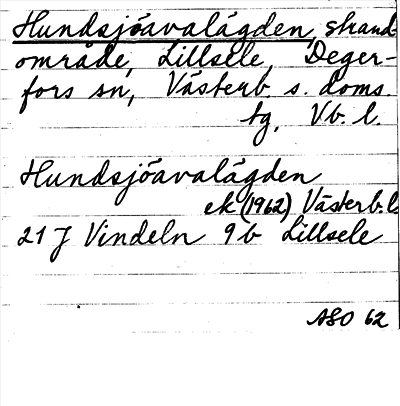 Hundsjöavalägden, strand-
område, Lillsele, Deger-
fors sn, Västerb. s. doms
tg, Vb. l.
Hundsjöavalägden
ek (1962) Västerb. l.
21 J Vindeln 9b Lillsele
ASO 62